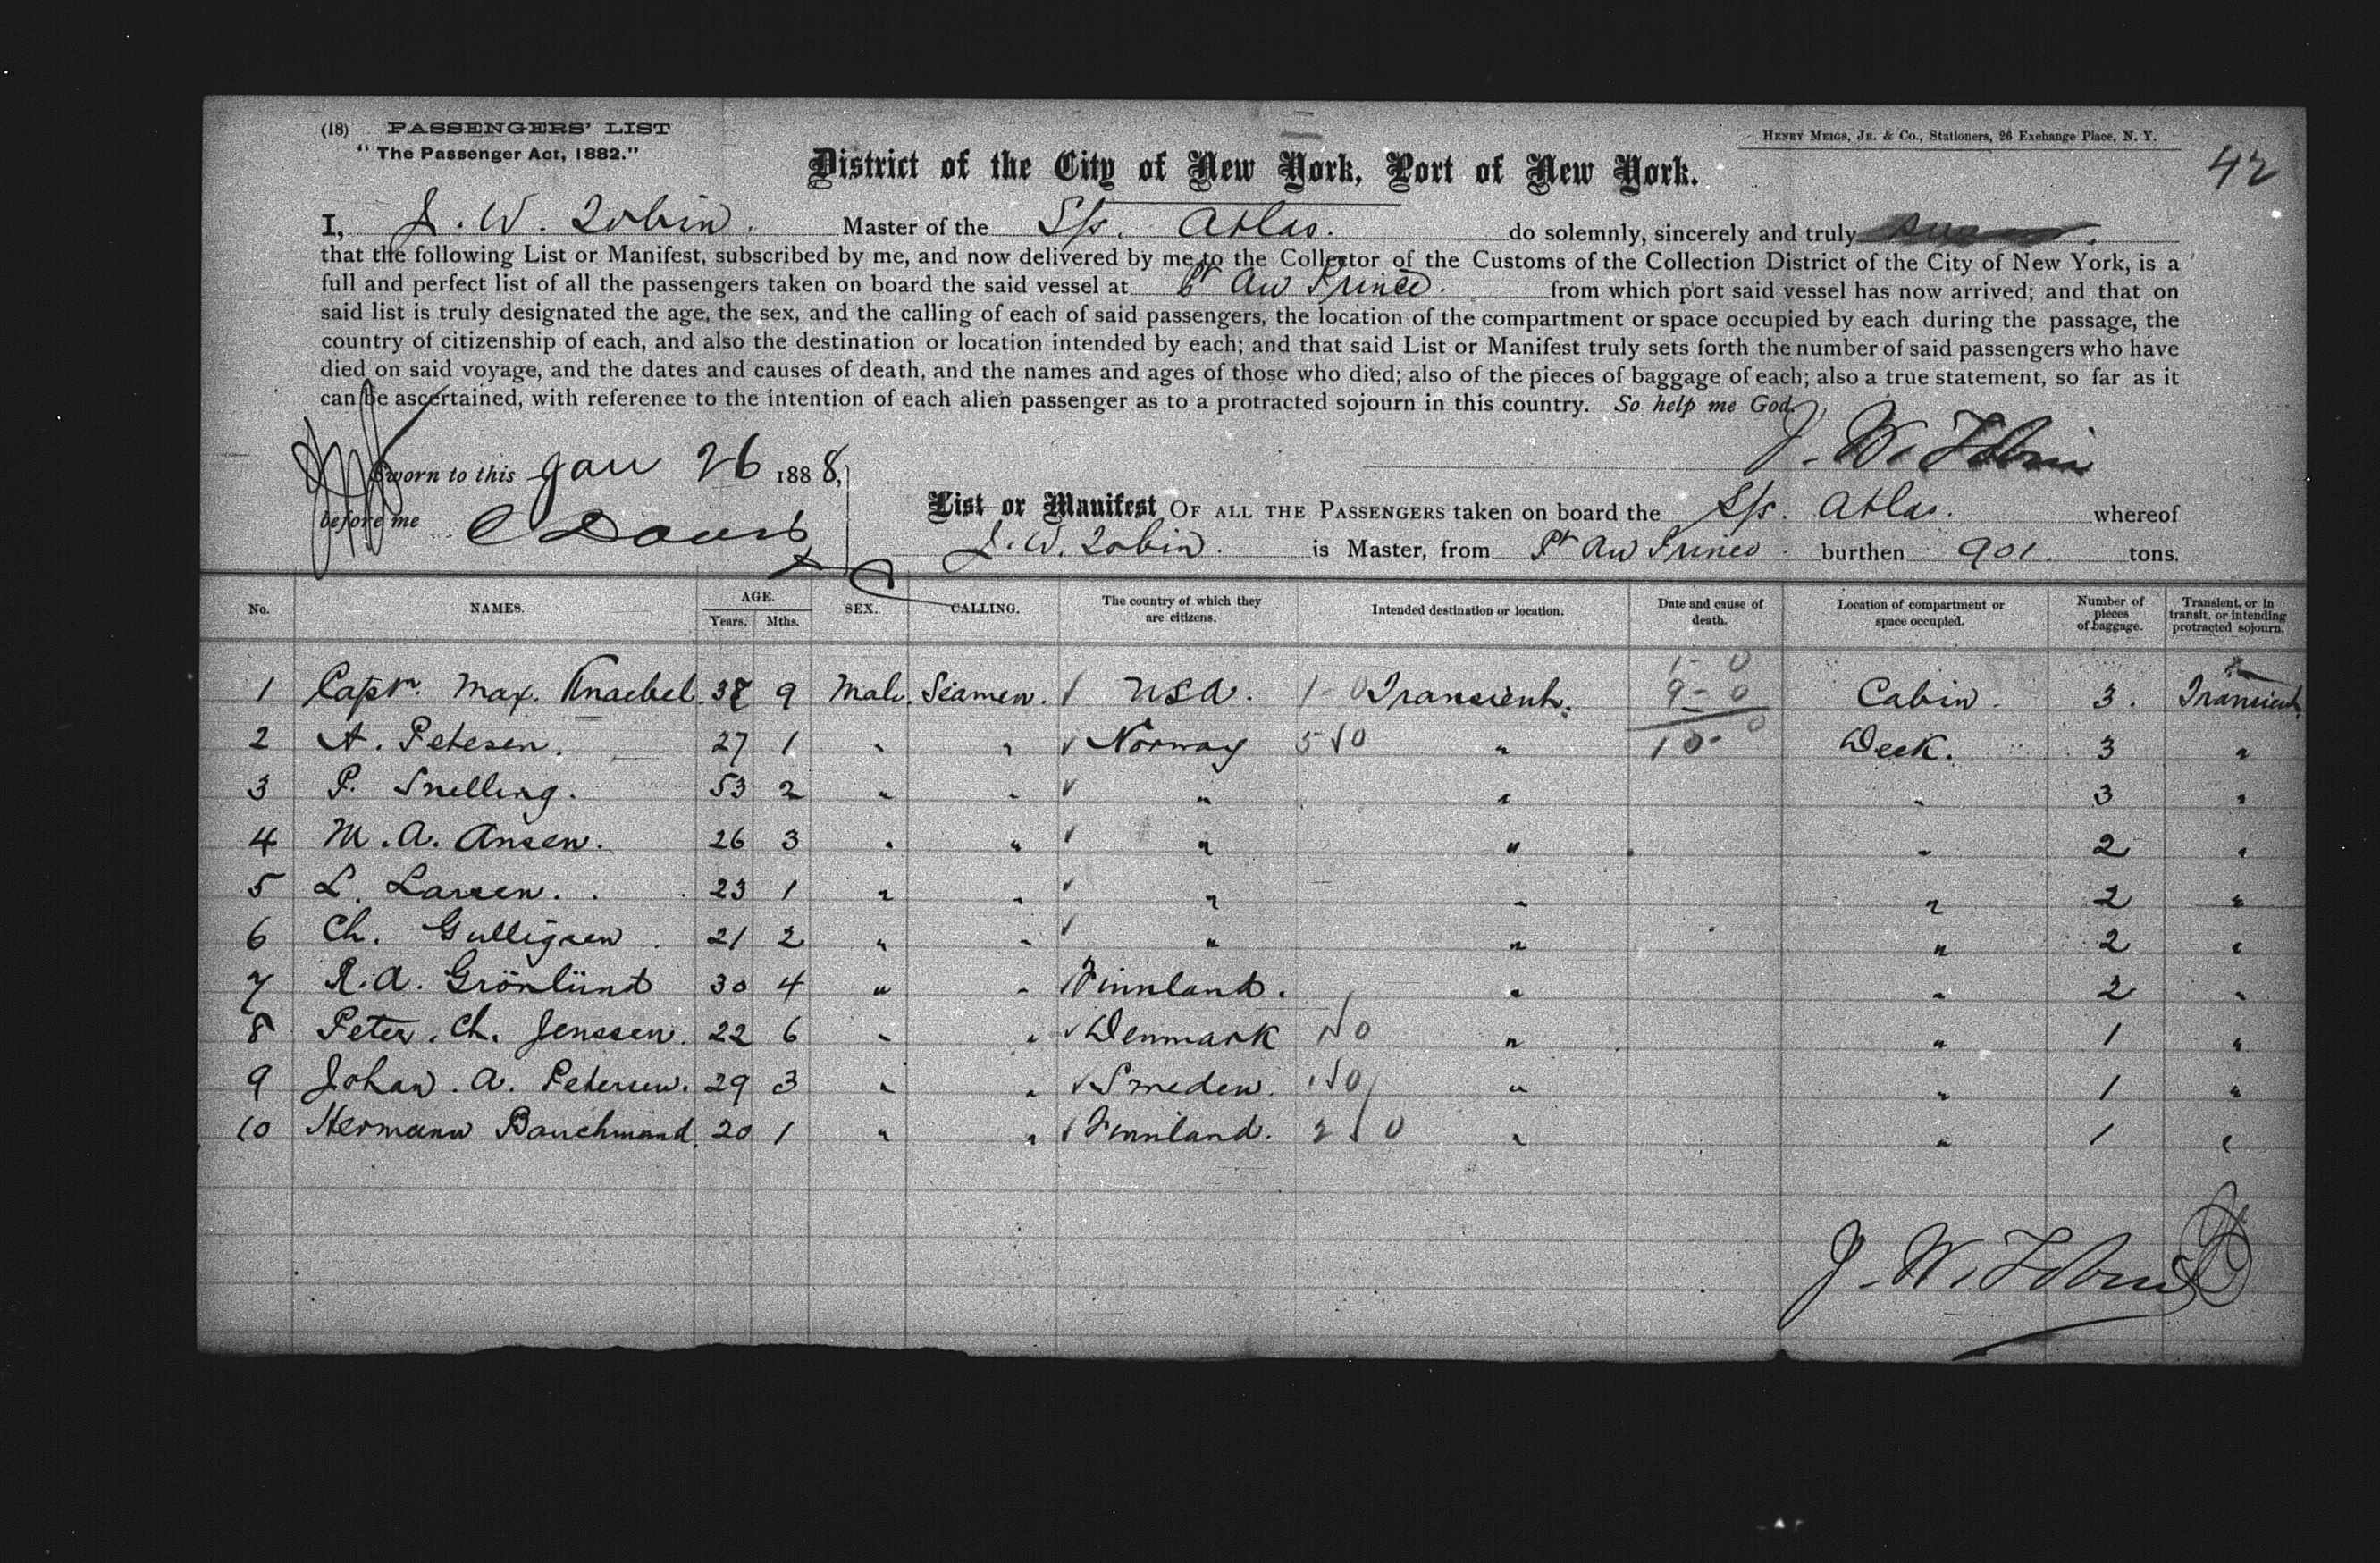 (18) PASSENGERS' LIST
"The Passenger Act, 1882."
HENRY MEIGS, JR. & CO., Stationers, 26 Exchange Place, N. Y.
42
District of the City of New York, Port of New York.
I, J. W. Tobin. Master of the S/s. Atlas. do solemnly, sincerely and truly
that the following List or Manifest, subscribed by me, and now delivered by me to the Collector of the Customs of the Collection District of the City of New York, is a
full and perfect list of all the passengers taken on board the said vessel at Pt Au Prince. from which port said vessel has now arrived; and that on
said list is truly designated the age, the sex, and the calling of each of said passengers, the location of the compartment or space occupied by each during the passage, the
country of citizenship of each, and also the destination or location intended by each; and that said List or Manifest truly sets forth the number of said passengers who have
died on said voyage, and the dates and causes of death, and the names and ages of those who died; also of the pieces of baggage of each; also a true statement, so far as it
can be ascertained, with reference to the intention of each alien passenger as to a protracted sojourn in this country. So help me God.
J. W. Tobin
Sworn to this Jan 26 1888,
before me C Davis
List or Manifest OF ALL THE PASSENGERS taken on board the S/s. Atlas. whereof
J. W. Tobin. is Master, from Pt Au Prince. burthen 901. tons.
No. NAMES. AGE. Years. Mths. SEX. CALLING. The country of which they are citizens. Intended destination or location. Date and cause of death. Location of compartment or space occupied. Number of pieces of baggage. Transient, or in transit, or intending protracted sojourn.
1 Captn. Max. Knaebel 38 9 Male. Seamen. U S A. 1-0 Transient. 1-0 9-0 10-0 Cabin. 3. Transient.
2 A. Petesen. 27 1 " " Norway 5 0 " Deck. 3 "
3 P. Snelling. 53 2 " " " " " 3 "
4 M. A. Ansen. 26 3 " " " " " 2 "
5 L. Larsen. 23 1 " " " " " 2 "
6 Ch. Gulligsen 21 2 " " " " " 2 "
7 R. A. Grönlünd 30 4 " " Finnland. " " 2 "
8 Peter. Ch. Jenssen. 22 6 " " Denmark 1 0 " " 1 "
9 Johan. A. Petersen. 29 3 " " Sweden. 1 0 " " 1 "
10 Hermann Bauchmand. 20 1 " " Finnland. 2 0 " " 1 "
J. W. Tobin